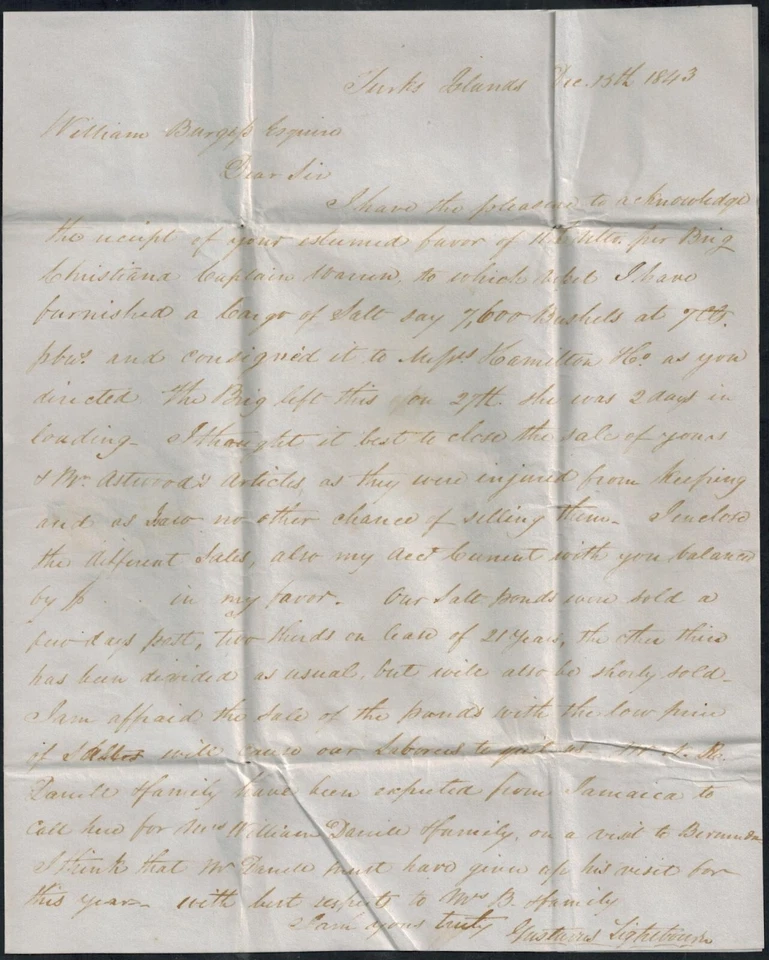 Turks Islands Dec. 15th 1843
William Burgess Esquire
Dear Sir
I have the pleasure to acknowledge
the receipt of your esteemed favor of Ulto. per Brig
Christiana Captain Warren, to which Vessel I have
furnished a Cargo of Salt say 7,600 Bushels at 7 Cts.
and consigned it to Messrs Hamilton & Co. as you
directed The Brig left this on 27th. she was 2 days in
loading - I thought it best to close the sale of yours
& Mr. Astwood's Articles as they were injured from keeping
and as I saw no other chance of selling them - I enclose
the different Sales, also my Acct Current with you balanced
by $ . . in my favor. Our Salt ponds were sold a
few days past, two thirds on lease of 21 Years, the other third
has been divided as usual, but will also be shortly sold -
I am affraid the sale of the ponds with the low price
of will cause our Laborers to quit us -
Darrell & family have been expected from Jamaica to
call here for Mrs William Darrell & family, on a visit to Bermuda
I think that Mr Darrell must have given up his visit for
this year - with best respects to Mrs B. & family
I am yours truly Gustavus Lightbourn